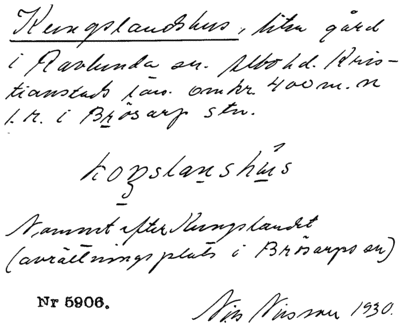 Kungslandshus, liten gård
i Ravlunda sn. Albo hd. Kris-
tianstads län. omkr 400 m. n
i Brösarp stn.
koŋslanshus
Namnt efter Kungslandet
(avrättningsplats i Brösarps sn)
Nr 5906.
Nils Nilsson 1930.